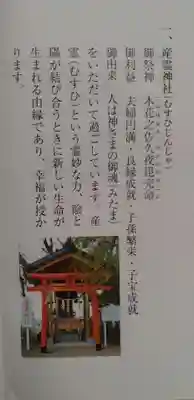 一、産霊神社(むすひじんじゃ)
御祭神　木花之佐久夜毘売命
御利益　夫婦円満・良縁成就・子孫繁栄・子宝成就
御由来　人は神さまの御魂(みたま)
をいただいて過ごしています。産
霊(むすひ)という霊妙な力、陰と
陽が結び合うときに新しい生命が
生まれる由縁であり、幸福が授か
ります。